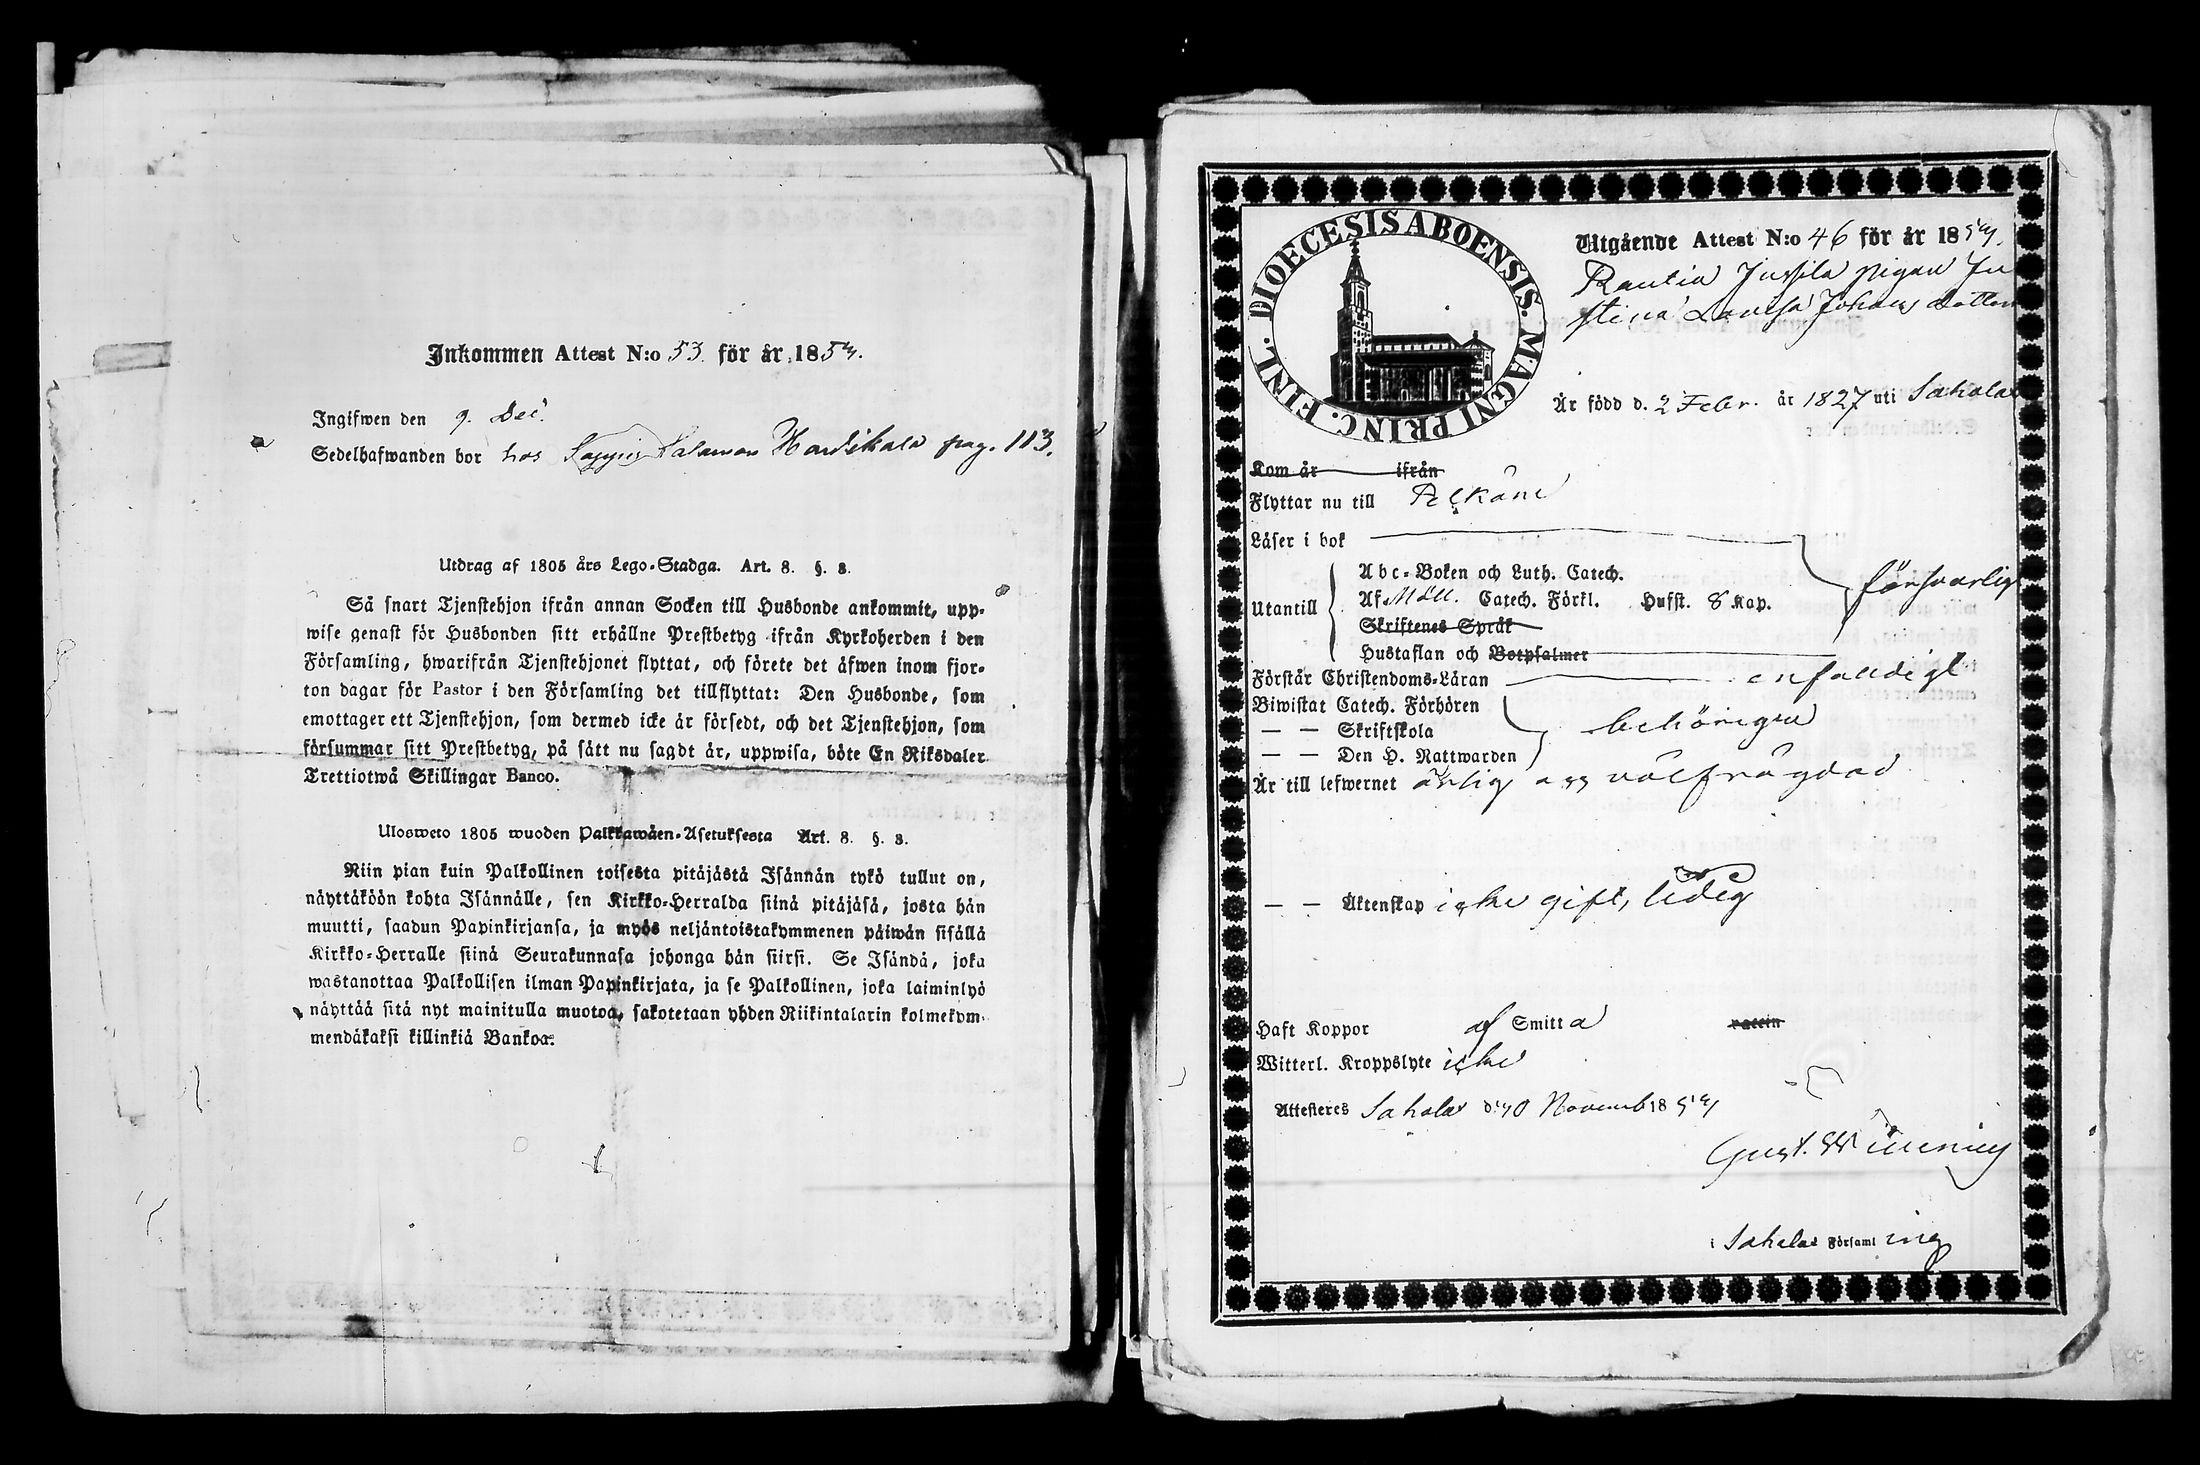 Inkommen Attest N:o 53. för år 1854.
Ingifwen den 9. Dec.
Sedelhafwanden bor hos Salomon pag. 113.
Utdrag af 1805 års Lego-Stadga. Art. 8. §. 3.
Så snart Tjenstehjon ifrån annan Socken till Husbonde ankommit, upp-
wise genast för Husbonden sitt erhållne Prestbetyg ifrån Kyrkoherden i den
Församling, hwarifrån Tjenstehjonet flyttat, och förete det äfwen inom fjor-
ton dagar för Pastor i den Församling det tillflyttat: Den Husbonde, som
emottager ett Tjenstehjon, som dermed icke är försedt, och det Tjenstehjon, som
försummar sitt Prestbetyg, på sätt nu sagdt är, uppwisa, böte En Riksdaler
Trettiotwå Skillingar Banco.
Ulosweto 1805 wuoden Palkkawäen-Asetuksesta Art. 8. §. 3.
Niin pian kuin Palkollinen toisesta pitäjästä Isännän tykö tullut on,
näyttäköön kohta Isännälle, sen Kirkko-Herralda siinä pitäjäsä, josta hän
muutti, saadun Papinkirjansa, ja myös neljäntoistakymmenen päiwän sisällä
Kirkko-Herralle siinä Seurakunnasa johonga hän siirsi. Se Isändä, joka
wastanottaa Palkollisen ilman Papinkirjata, ja se Palkollinen, joka laiminlyö
näyttää sitä nyt mainitulla muotoa, sakotetaan yhden Riikintalarin kolmekym-
mendäkaksi killinkiä Bankoa.
DIOECESIS ABOENSIS. MAGNI PRINC. FINL.
Utgående Attest N:o 46 för år 1854.
Rautia Jussila pigan Ju
stina Lovisa Johans dotter
Är född d. 2 Febr. år 1827 uti Sahalax
Kom år ifrån
Flyttar nu till Pelkäne
Läser i bok
Abc-Boken och Luth. Catech.
Utantill Af Möll. Catech. Förkl. Husst. 8 Kap. försvarligt
Skriftenes Språk
Hustaflan och Botpsalmer
Förstår Christendoms-Läran enfaldigt
Biwistat Catech. Förhören
— — Skriftskola behörigen
— — Den H. Nattwarden
Är till lefwernet ärlig och välfrägdad
— — Äktenskap icke gift, ledig
Haft Koppor af Smitta vaccin
Witterl. Kroppslyte icke
Attesteres Sahalax d. 40 Novemb 1854
Gust. Winning
i Sahalax Församling